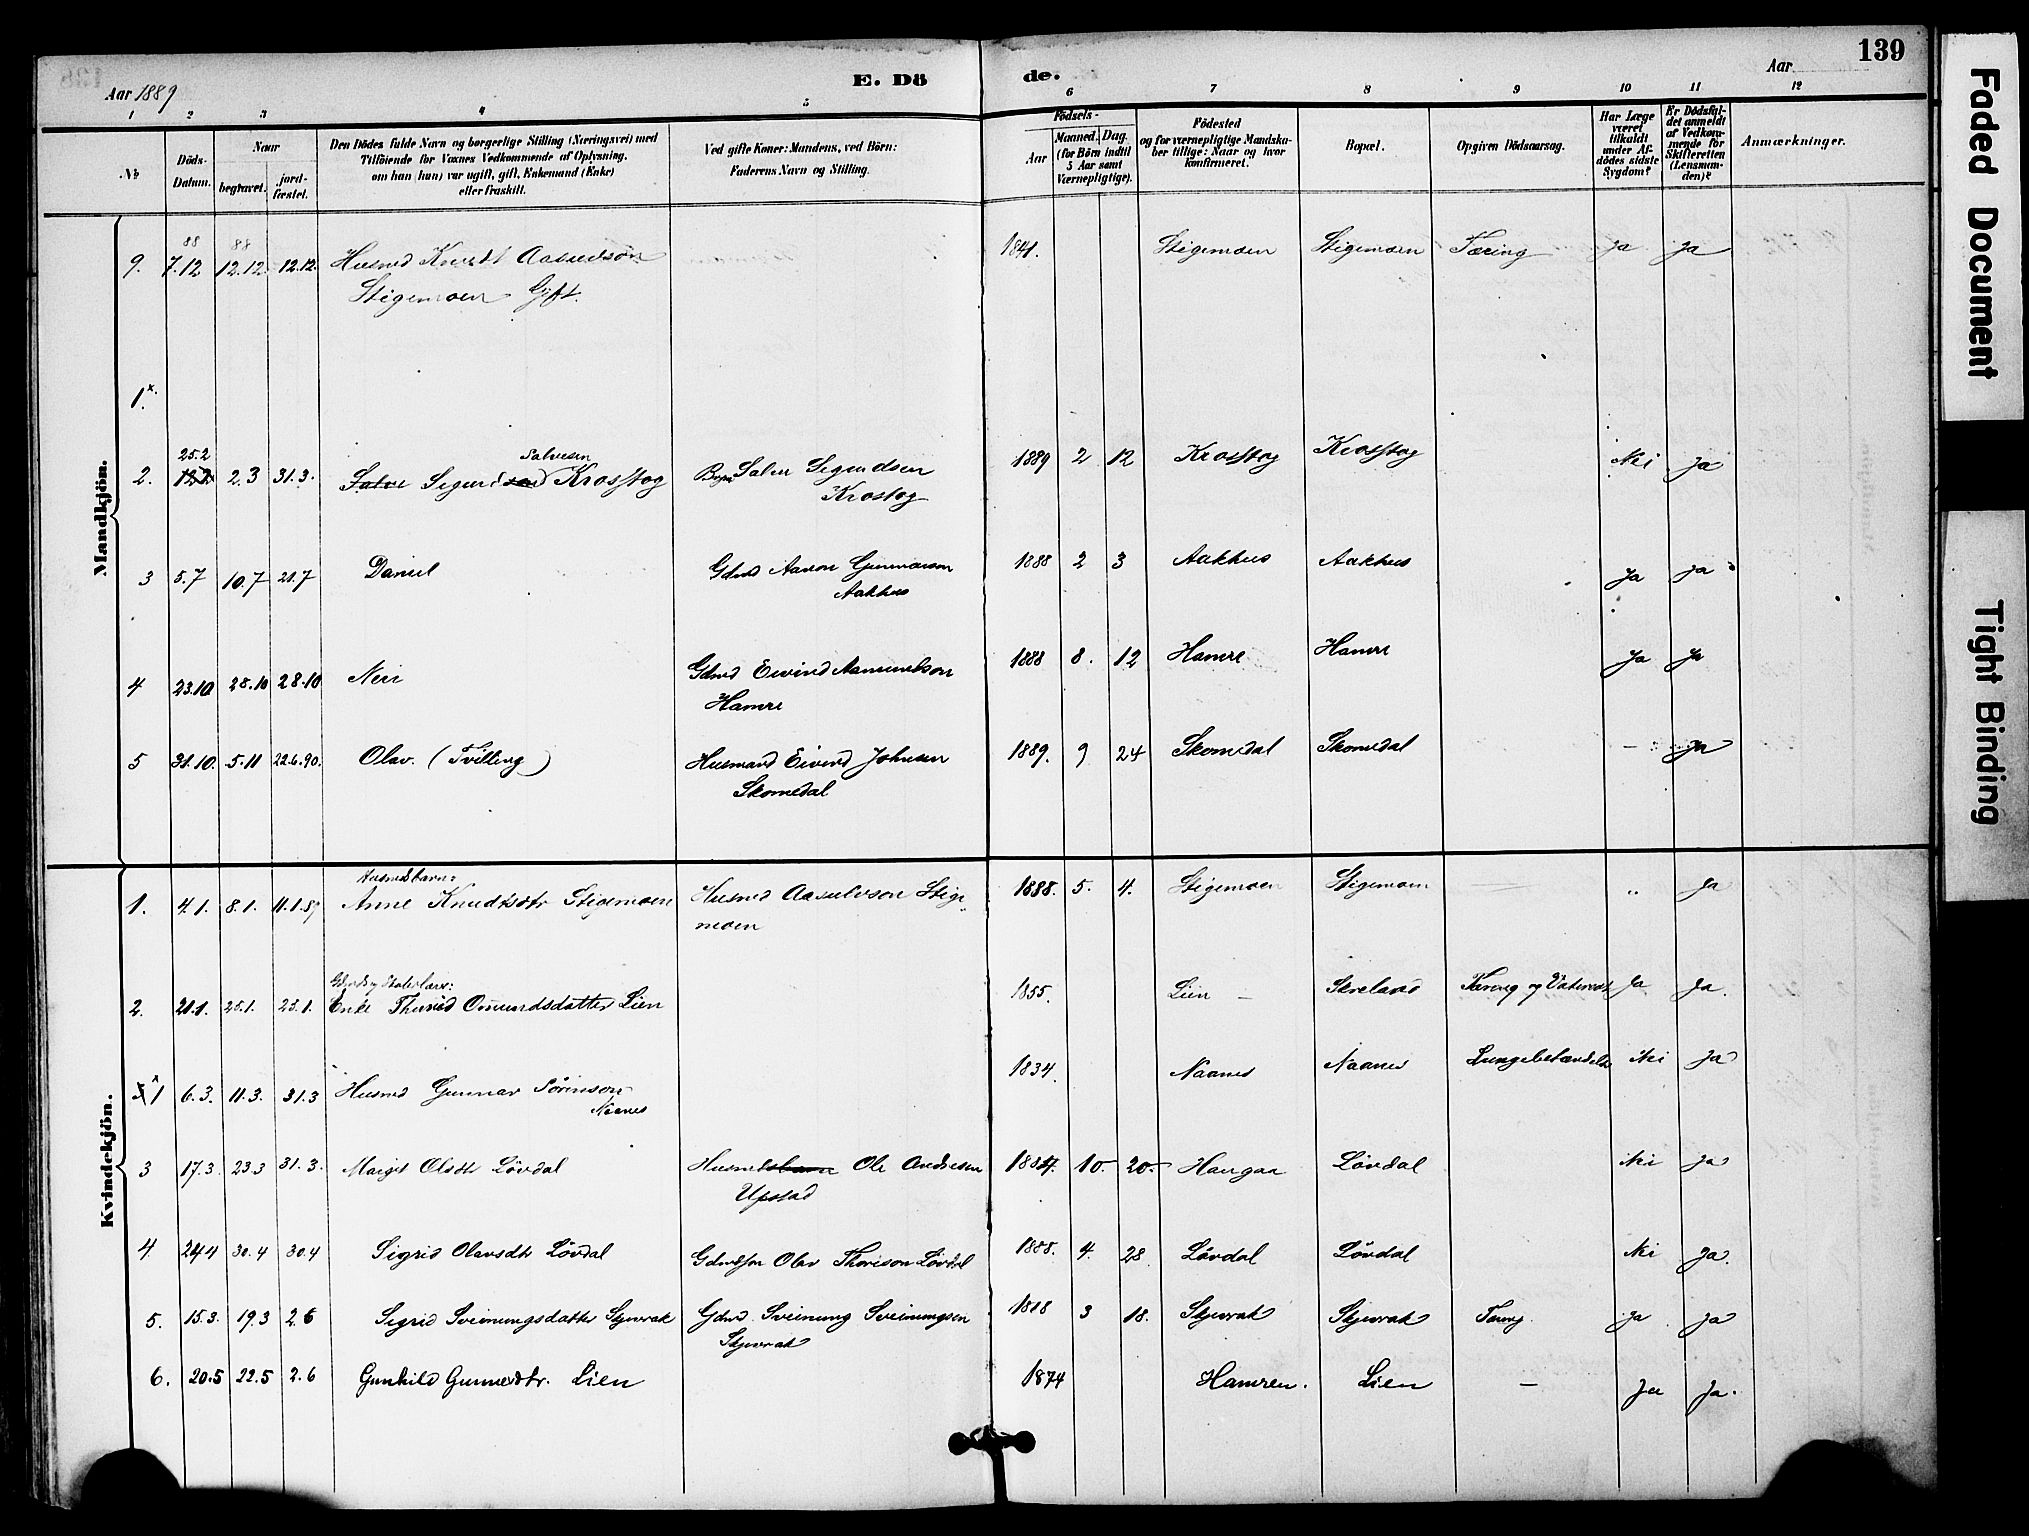 139
Aar 1889
E. Dö
de.
Aar
1 2 3 4 5 6 7 8 9 10 11 12
№
Döds-
Datum.
Naar
begravet.
jord-
fæstet.
Den Dödes fulde Navn og borgerlige Stilling (Næringsvei) med
Tilföiende for Voxnes Vedkommende af Oplysning,
om han (hun) var ugift, gift, Enkemand (Enke)
eller fraskilt.
Ved gifte Koner: Mandens, ved Börn:
Faderens Navn og Stilling.
Födsels-
Aar
Maaned.
Dag.
(for Börn indtil
5 Aar samt
Værnepligtige).
Födested
og for værnepligtige Mandska-
ber tillige: Naar og hvor
konfirmeret.
Bopæl.
Opgiven Dödsaarsag.
Har Læge
været
tilkaldt
under Af-
dödes sidste
Sygdom?
Er Dödsfal-
det anmeldt
af Vedkom-
mende for
Skifteretten
(Lensman-
den)?
Anmærkninger.
Mandkjön.
88 88
9. 7.12 12.12 12.12. Husmd Knudt Aasulvsön 1841. Stigemoen Stigemoen Tæring Ja Ja
Stigemoen Gift.
1.x
25.2 Salvesen
2. 12.2 2.3 31.3. Salve Sigurdsen Krosstog Salve Sigurdsen 1889 2 12 Krosstog Krosstog Nei Ja
Krostog
3 5.7 10.7 21.7 Daniel Gdmd Aanon Gunnarson 1888 2 3 Aakhus Aakhus Ja Ja
Aakhus
4 23.10 28.10 28.10 Neri Gdmd Eivind Aanundson 1888 8. 12 Hamre Hamre Ja Ja
Hamre
5 31.10. 5.11 22.6.90. Olav. (Tvilling) Husmand Eivind Johnsen 1889. 9 24 Skomedal Skomedal - Ja
Skomedal
Kvindekjön.
Husmdsbarn:
1. 4.1. 8.1. 11.1.89 Anne Knudtsdtr Stigemoen Husmd Aasulvson Stige- 1888. 5. 4. Stigemoen Stigemoen — „ Ja
moen
2. 21.1. 25.1. 25.1. Enke Thurid Omundsdatter Lien 1855. Lien — Skreland Tæring og Ja Ja.
3 x1 6.3. 11.3. 31.3 Husmd Gunnar Sörinson 1834. Naanes Naanes Lungebetændelse Nei Ja
Naanes
3 17.3. 23.3 31.3. Margit Olsdtr Lövdal Husmdsbarn Ole Andresen 10. 20. Haugaa Lövdal Nei Ja
Upstad
4. 24.4 30.4 30.4 Sigrid Olavsdtr Lövdal Olav Thorison Lövdal 1888. 4. 28. Lövdal Lövdal Nei Ja.
5. 15.3. 19.3 2.6 Sigrid Sveinungsdatter Skjevrak Gdmd. Sveinung Sveinungsen 1818 3 18. Skjevrak Skjevrak Tæring. Ja Ja
Skjevrak
6. 20.5 22.5 2.6 Gunhild Gunnersdtr. Lien 1874 Hamren. Lien — Ja Ja.
Faded Document
Tight Binding